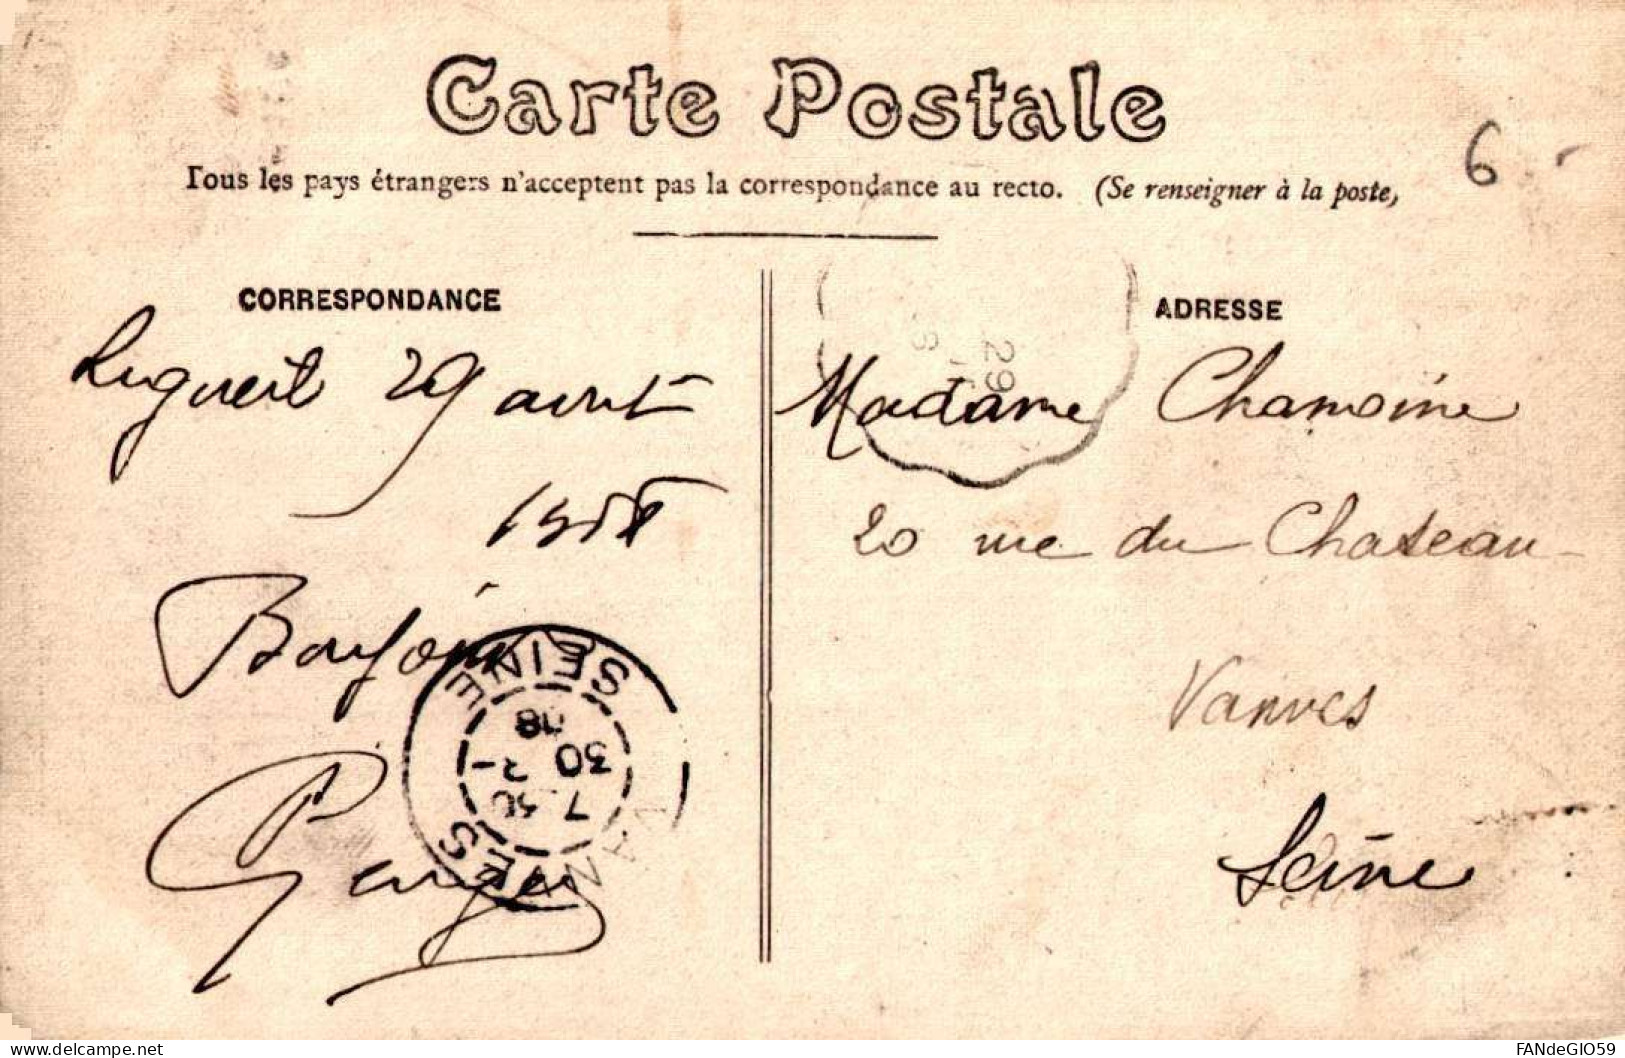 Carte Postale
Tous les pays étrangers n'acceptent pas la correspondance au recto. (Se renseigner à la poste)
6
CORRESPONDANCE
29 avril
1908
Bonjour
Georges
VANVES SEINE
7 30
30 -
08
ADRESSE
29
8
Madame Chamoine
20 rue du Chateau
Vanves
Seine
delcampe.net
FANdeGIO59